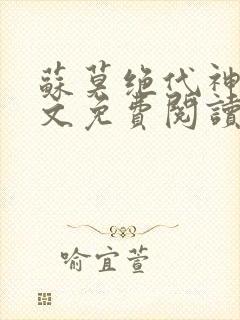 蘇莫绝代神
文免費閱讀
喻宜萱